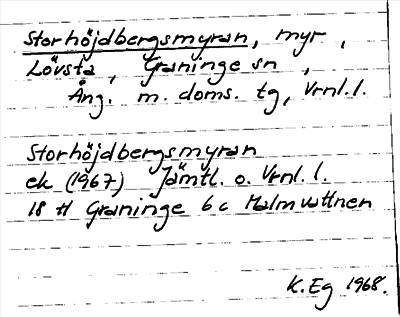 Storhöjdbergsmyran, myr,
Lövsta, Graninge sn,
Ång. m. doms. tg, Vrnl. l.
Storhöjdbergsmyran
ek (1967) Jämtl. o. Vrnl. l.
18 H Graninge 6 c Malmvattnen
K. Eg 1968.